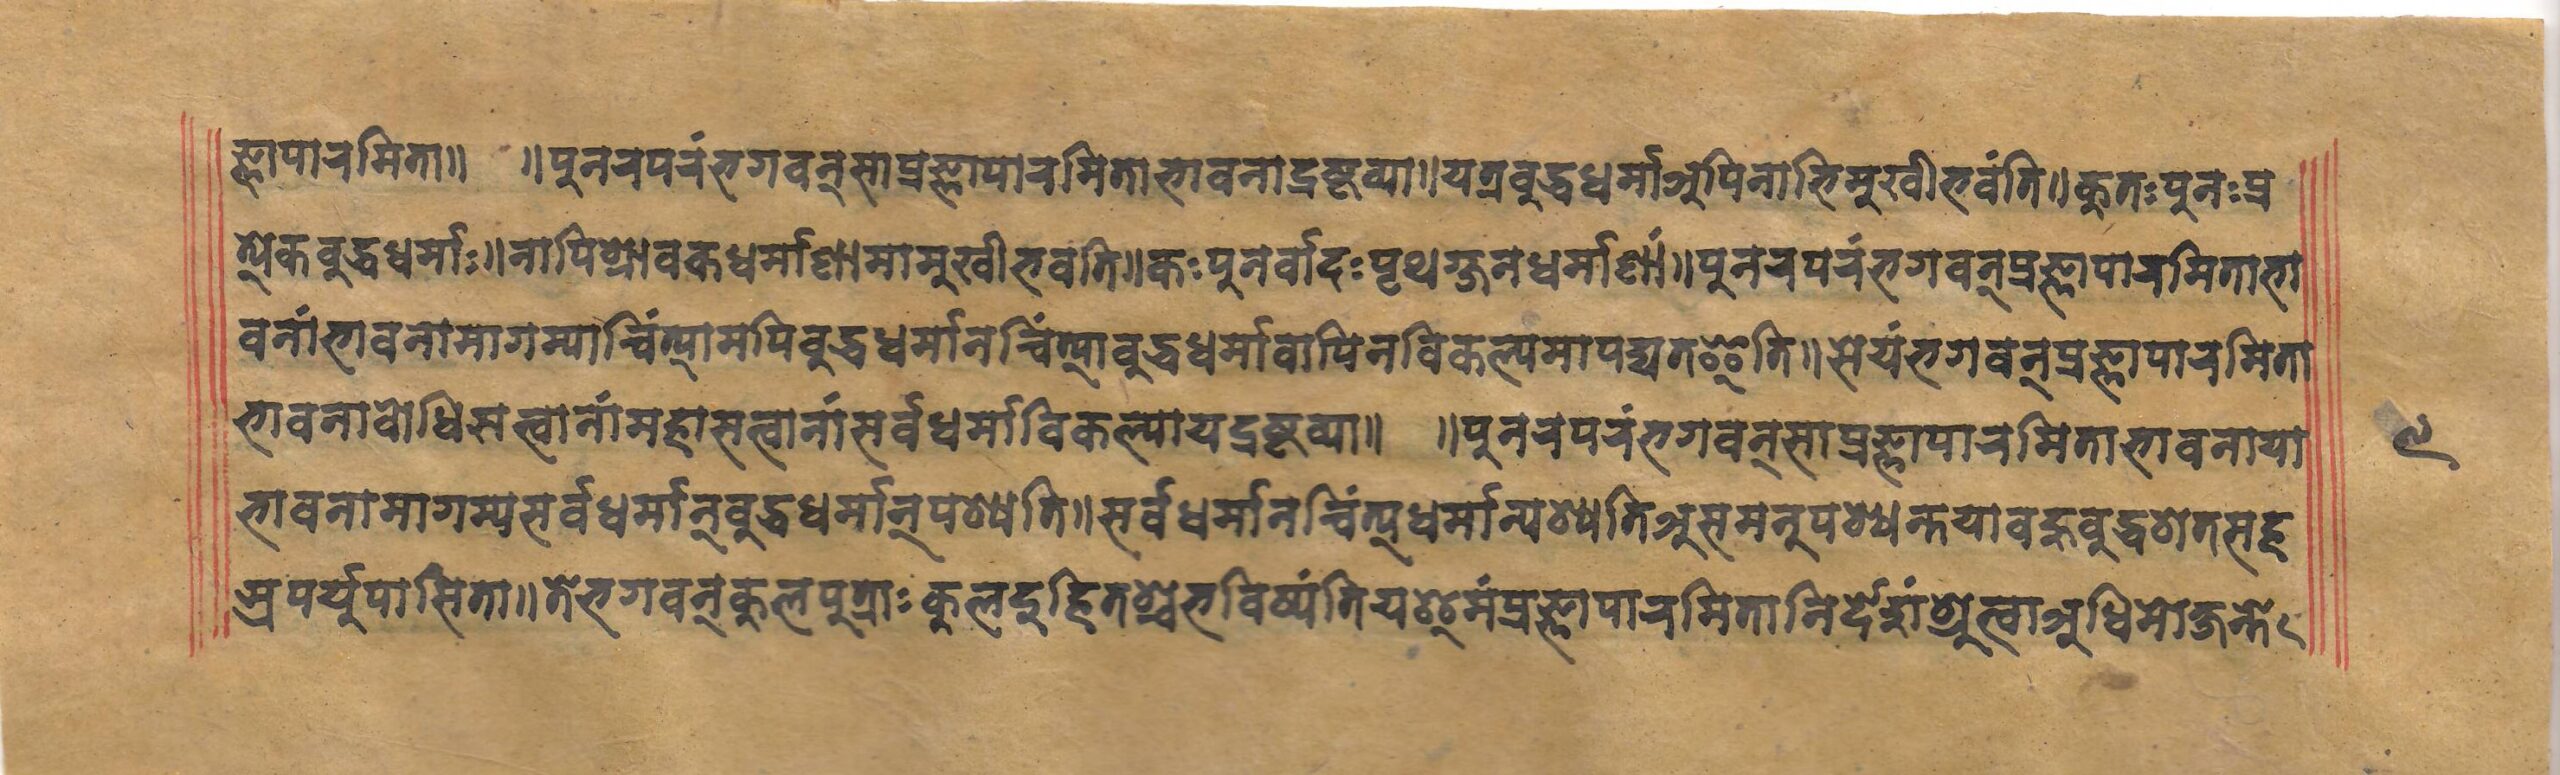 ज्ञापारमिता॥ ॥पुनरपरंभगवन्साप्रज्ञापारमिताभावनाद्रष्टव्या॥यत्रबुद्धधर्माअपिनाभिमुखीभवंति॥कुतःपुनःप्र
त्येकबुद्धधर्माः॥नापिश्रावकधर्माणामामुखीभवति॥कःपुनर्वादःपृथग्जनधर्माणां॥पुनरपरंभगवन्प्रज्ञापारमिताभा
वनांभावनामागम्याचिंत्यामपिबुद्धधर्मानचिंत्याबुद्धधर्मावापिनविकल्पमापद्यतइति॥सेयंभगवन्प्रज्ञापारमिता
भावनाबोधिसत्वानांमहासत्वानांसर्वधर्माविकल्पायद्रष्टव्या॥ ॥पुनरपरंभगवन्साप्रज्ञापारमिताभावनाया
भावनामागम्यसर्वधर्मान्बुद्धधर्मान्पश्यति॥सर्वधर्मानचिंत्यधर्मान्पश्यतिअसमनुपश्यन्तयावहुबुद्धशतसह
स्रपर्युपासिता॥तेभगवन्कुलपुत्राःकुलदुहितश्चभविष्यंतियइमंप्रज्ञापारमितानिर्देशंश्रुत्वाअधिमोक्षन्ते
९